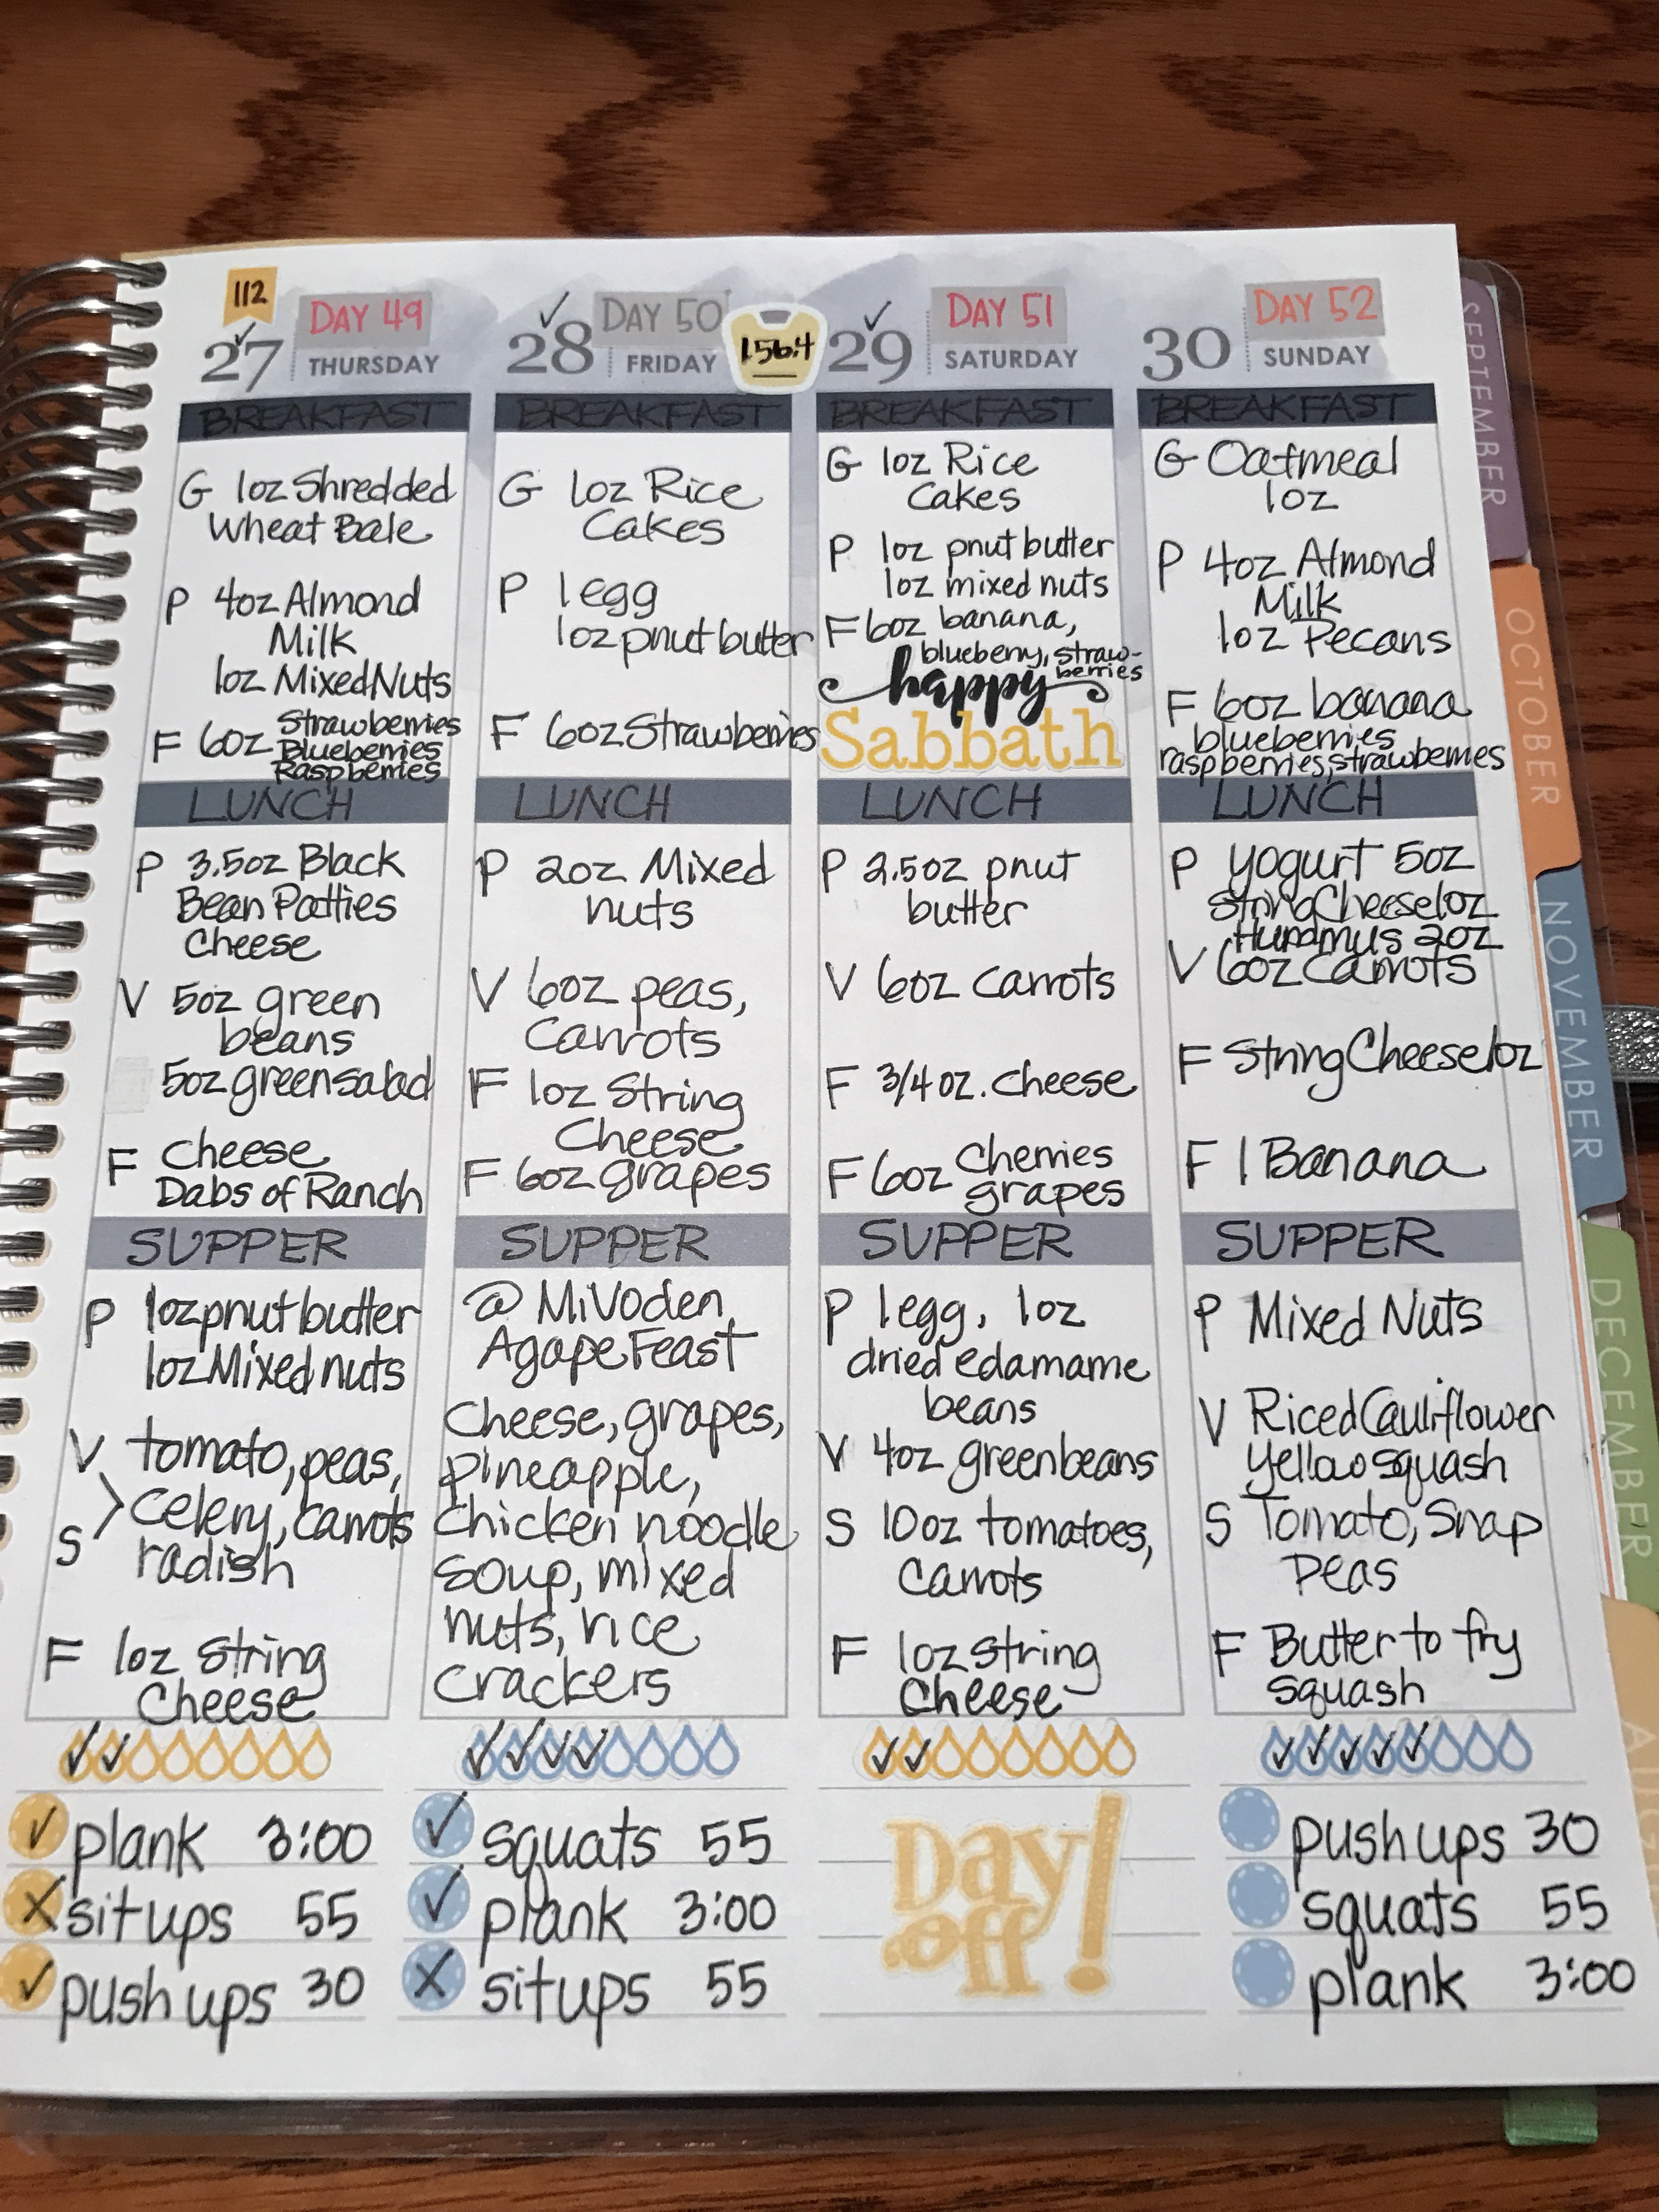 112
DAY 49
27 THURSDAY
BREAKFAST
G 1oz Shredded
Wheat Bale
P 4oz Almond
Milk
1oz Mixed Nuts
F 6oz Strawberries
Blueberries
Raspberries
LUNCH
P 3.5oz Black
Bean Patties
Cheese
V 5oz green
beans
5oz green salad
F Cheese
Dabs of Ranch
SUPPER
P 1oz pnut butter
1oz Mixed nuts
V tomato, peas,
> celery, carrots
S radish
F 1oz String
Cheese
plank 3:00
situps 55
push ups 30
DAY 50
28 FRIDAY
156.4
BREAKFAST
G 1oz Rice
Cakes
P 1 egg
1oz pnut butter
F 6oz Strawberries
LUNCH
P 2oz Mixed
nuts
V 6oz peas,
Carrots
F 1oz String
Cheese
F 6oz grapes
SUPPER
@ MiVoden
Agape Feast
Cheese, grapes,
pineapple,
Chicken noodle
Soup, mixed
nuts, rice
crackers
squats 55
plank 3:00
situps 55
DAY 51
29 SATURDAY
BREAKFAST
G 1oz Rice
Cakes
P 1oz pnut butter
1oz mixed nuts
F 6oz banana,
blueberry, straw-
berries
happy
Sabbath
LUNCH
P 2.5oz pnut
butter
V 6oz carrots
F 3/4 oz. cheese
F 6oz Cherries
grapes
SUPPER
P 1 egg, 1oz
dried edamame
beans
V 4oz green beans
S 10oz tomatoes,
Carrots
F 1oz String
Cheese
Day
off!
DAY 52
30 SUNDAY
BREAKFAST
G Oatmeal
1oz
P 4oz Almond
Milk
1oz Pecans
F 6oz banana
blueberries
raspberries, strawberries
LUNCH
P Yogurt 5oz
String Cheese 1oz
Hummus 2oz
V 6oz Carrots
F String Cheese 1oz
F 1 Banana
SUPPER
P Mixed Nuts
V Riced Cauliflower
Yellow squash
S Tomato, Snap
Peas
F Butter to fry
squash
push ups 30
squats 55
plank 3:00
SEPTEMBER
OCTOBER
NOVEMBER
DECEMBER